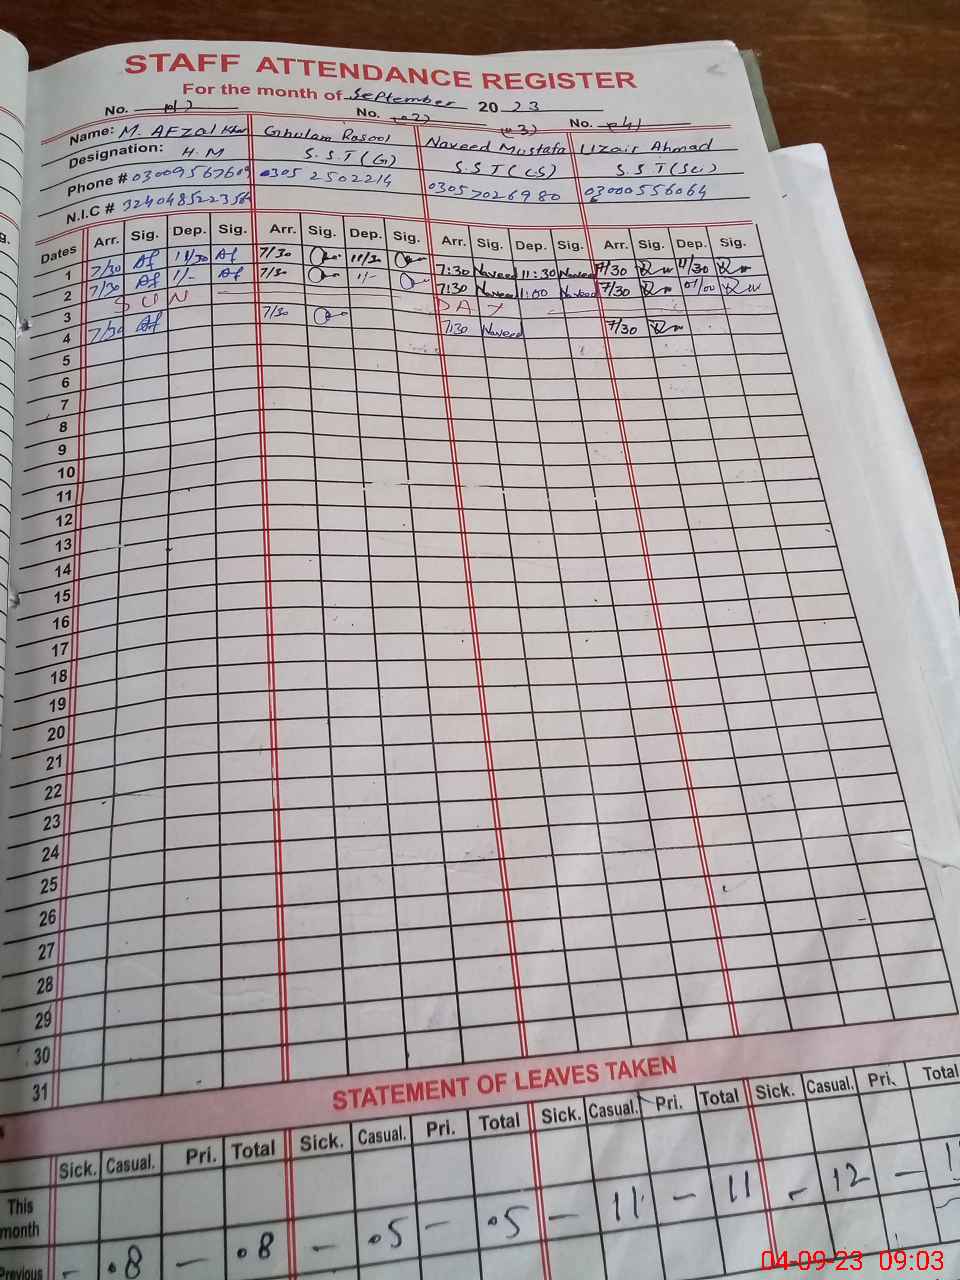 STAFF ATTENDANCE REGISTER
For the month of September 2023
No. No. No.
Name: M. AFzal Khan Ghulam Rasool Naveed Mustafa Uzair Ahmad
Designation: H.M S.S.T(G) S.S.T(CS) S.S.T(Sc)
Phone # 0305 2502214 03057026980 03000556064
N.I.C #
Dates Arr. Sig. Dep. Sig. Arr. Sig. Dep. Sig. Arr. Sig. Dep. Sig. Arr. Sig. Dep. Sig.
1 7/30 Af 11/30 Af 7/30 11/30 7:30 Naveed 11:30 Naveed 7/30 11/30
2 7/30 Af 1/- Af 7/30 1/- 7:30 Naveed 1:00 Naveed 7/30 01/00
3 SUN - DAY
4 7/30 Af 7/30 7:30 Naveed 7/30
5
6
7
8
9
10
11
12
13
14
15
16
17
18
19
20
21
22
23
24
25
26
27
28
29
30
31
STATEMENT OF LEAVES TAKEN
Sick. Casual. Pri. Total Sick. Casual. Pri. Total Sick. Casual. Pri. Total Sick. Casual. Pri. Total
This month
Previous - .8 - .8 - .5 - .5 - 11 - 11 - 12 -
04-09-23 09:03